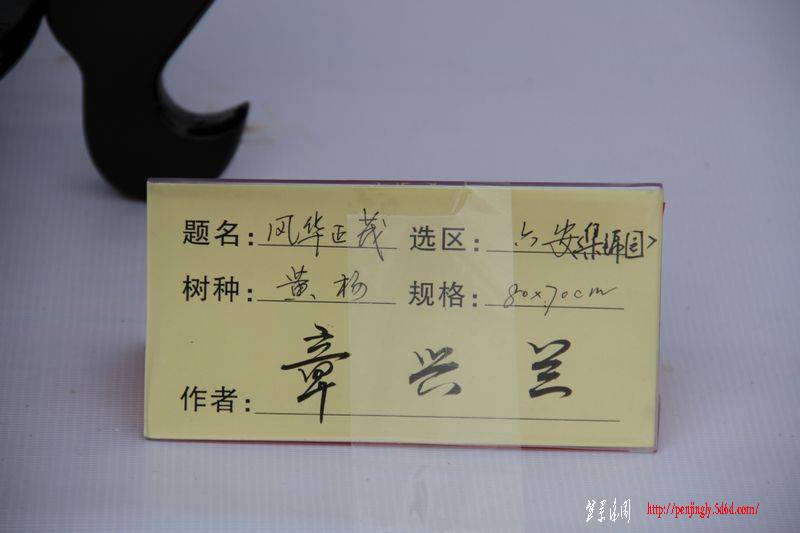 题名: 风华正茂 选区: 六安
树种: 黄杨 规格: 80x70cm
作者: 章兴兰
盆景乐园 http://penjingly.5d6d.com/